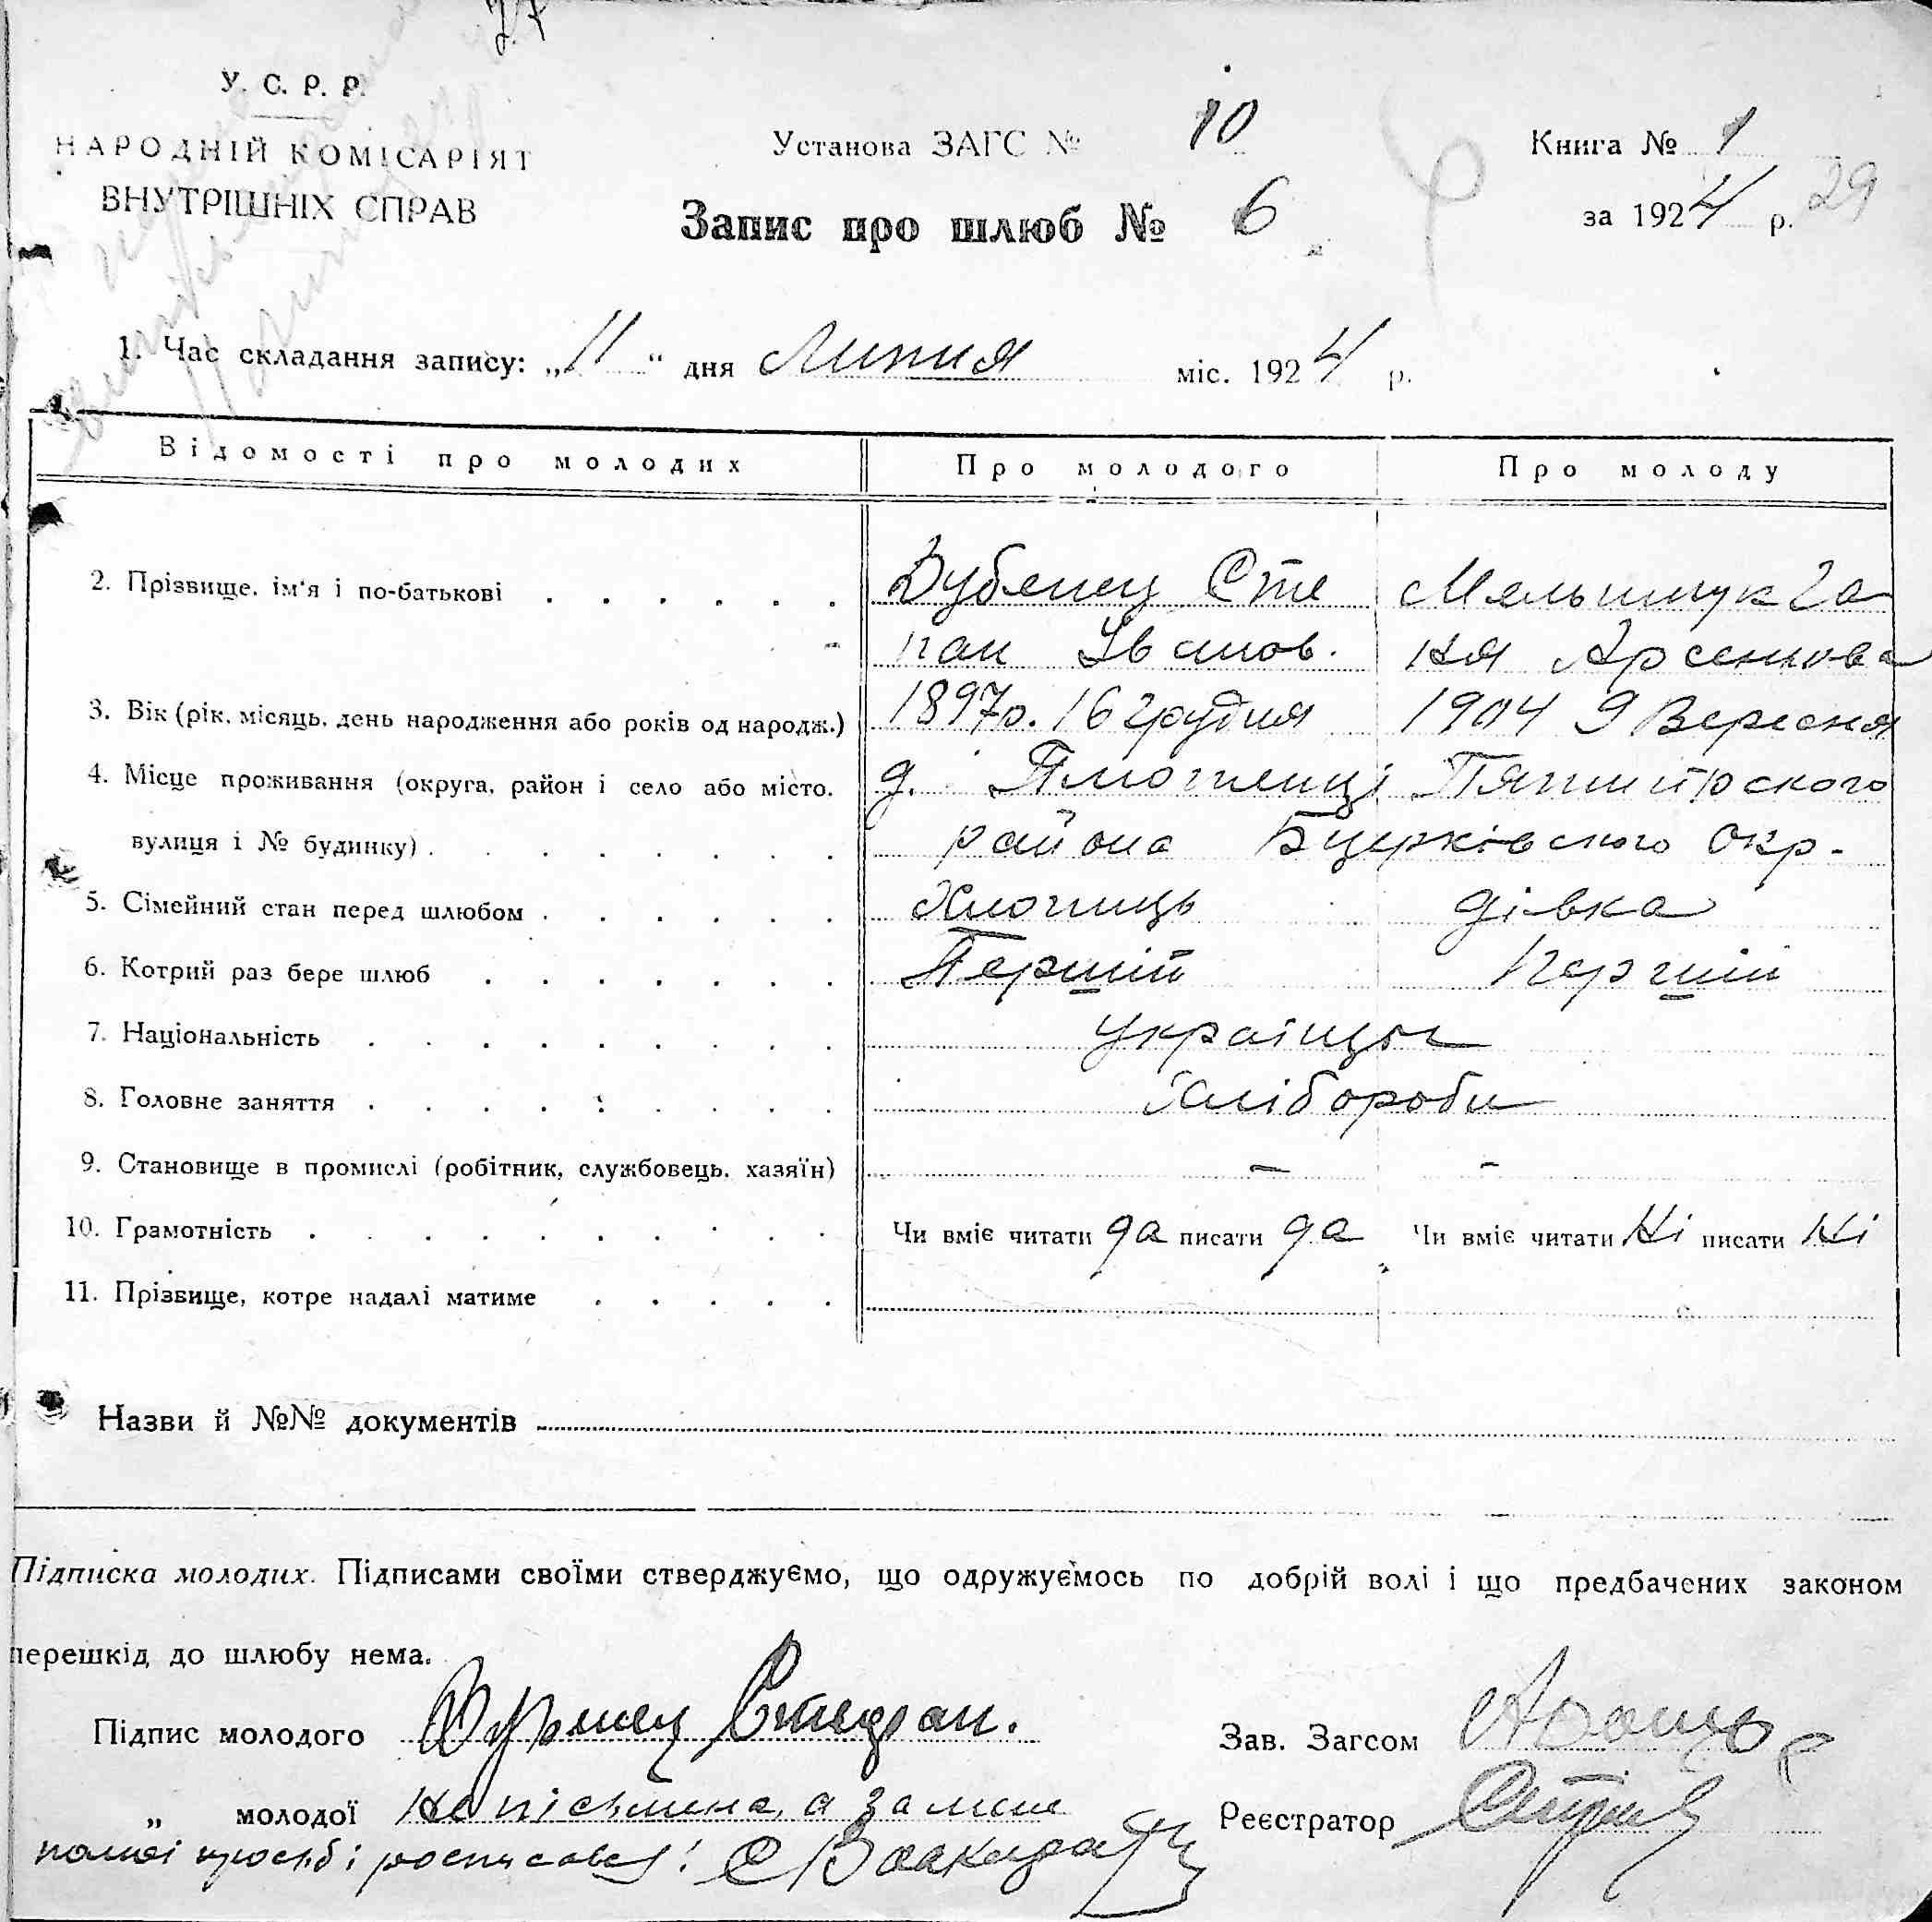 27
У. С. Р. Р.
НАРОДНІЙ КОМІСАРІЯТ
ВНУТРІШНІХ СПРАВ
Установа ЗАГС № 10
Книга № 1
Запис про шлюб № 6
за 1924 р. 29
1. Час складання запису: „11“ дня Липня міс. 1924 р.
Відомості про молодих Про молодого Про молоду
2. Прізвище, ім'я і по-батькові Дубенец Сте Мельничук Га
пан Іванов. ня Арсенова
3. Вік (рік, місяць, день народження або років од народж.) 1897р. 16 грудня 1904 9 Вересня
4. Місце проживання (округа, район і село або місто, д. Пятигірского
вулиця і № будинку) района Бцерківского Окр.
5. Сімейний стан перед шлюбом Хлопиць дівка
6. Котрий раз бере шлюб Першій Першій
7. Національність Українцы
8. Головне заняття Хлібороби
9. Становище в промислі (робітник, службовець, хазяїн) – –
10. Грамотність Чи вміє читати да писати да Чи вміє читати Ні писати Ні
11. Прізвище, котре надалі матиме
Назви й №№ документів
Підписка молодих. Підписами своїми стверджуємо, що одружуємось по добрій волі і що предбачених законом
перешкід до шлюбу нема.
Підпис молодого Дубенец Степан.
Зав. Загсом
„ молодої Не письмена, а за мене
Реєстратор
просьбі росписався: